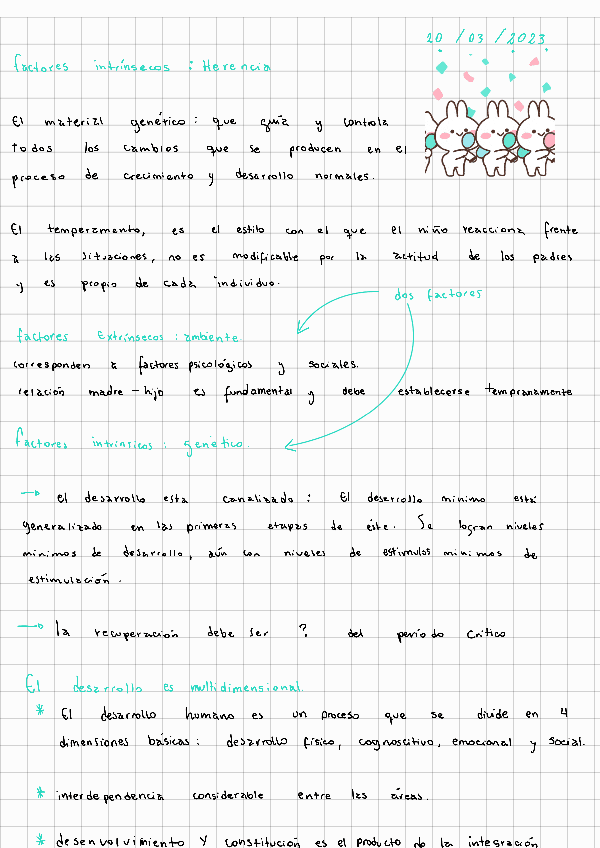 20 / 03 / 2023
factores intrínsecos : Herencia
El material genético : que guía y controla
todos los cambios que se producen en el
proceso de crecimiento y desarrollo normales.
El temperamento, es el estilo con el que el niño reacciona frente
a las situaciones, no es modificable por la actitud de los padres
y es propio de cada individuo.
dos factores
factores Extrínsecos : ambiente.
corresponden a factores psicológicos y sociales.
relación madre - hijo es fundamental y debe establecerse tempranamente
factores intrínsicos : genético.
→ el desarrollo esta canalizado : El deserrollo mínimo está
generalizado en las primeras etapas de éste. Se logran niveles
mínimos de desarrollo, aún con niveles de estimulos minimos de
estimulación.
→ la recuperación debe ser ? del período crítico
El desarrollo es multidimensional.
* El desarrollo humano es un proceso que se divide en 4
dimensiones básicas : desarrollo físico, cognoscitivo, emocional y social.
* interdependencia considerable entre las áreas.
* desenvolvimiento y constitución es el producto de la integración